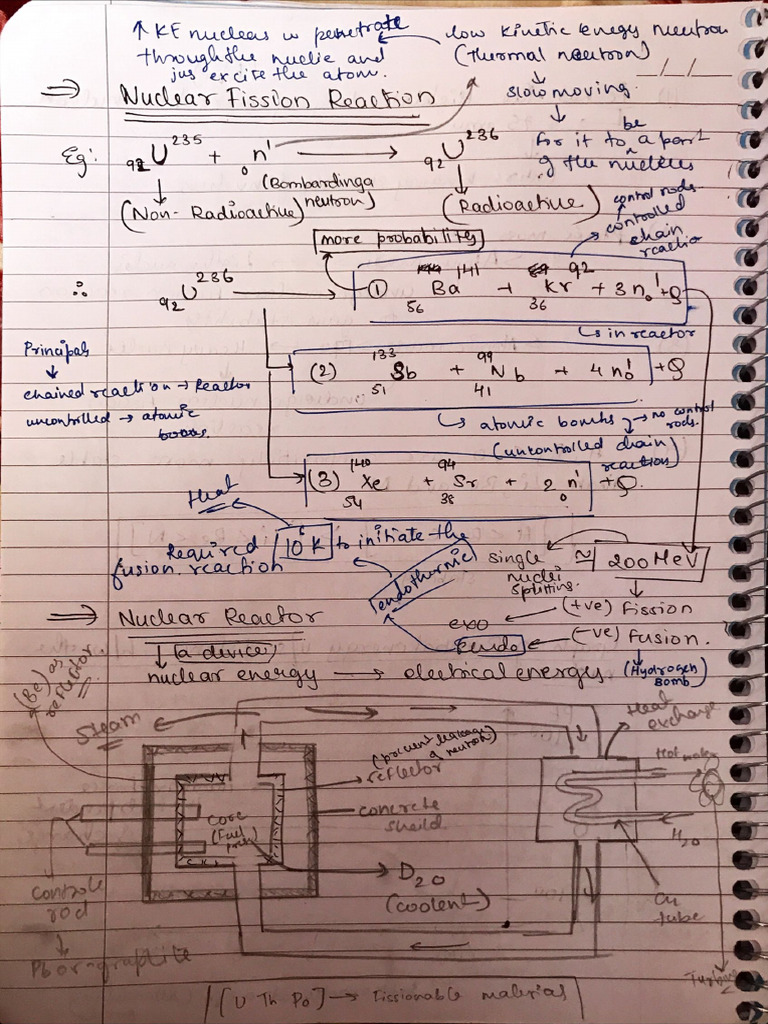 ↑ KE nucleus w penetrate
through the nuclie and
jus excite the atom.
low kinetic energy neutron
(thermal neutron)
__/__/__
↓
slow moving.
↓
for it to be a part
of the nucleus
⇒ Nuclear Fission Reaction
Eg: ₉₂U²³⁵ + ₀n¹ → ₉₂U²³⁶
(Bombarding a
neutron)
(Non-Radioactive)
(Radioactive)
control rods
controlled
chain
reaction
more probability
∴ ₉₂U²³⁶ → (1) ₅₆Ba¹⁴¹ + ₃₆Kr⁹² + 3 ₀n¹ + Q
↳ in reactor
Principal
↓
chained reaction → Reactor
uncontrolled → atomic
(2) ₅₁Sb¹³³ + ₄₁Nb⁹⁹ + 4 ₀n¹ + Q
↳ atomic bombs → no control
rods.
(uncontrolled chain
reaction)
(3) ₅₄Xe¹⁴⁰ + ₃₈Sr⁹⁴ + 2 ₀n¹ + Q
Heat
Required 10⁶K to initiate the
fusion reaction
endothermic
single
nuclei
splitting.
≅ 200 MeV
exo ← (+ve) Fission
Eendo ← (-ve) Fusion.
(Hydrogen
Bomb)
⇒ Nuclear Reactor
↓ (a device)
nuclear energy → electrical energy
(Be) as
reflector
Steam
Heat
exchange
(prevent leakage
of neutron)
reflector
Hot water
core
(Fuel
concrete
sheild.
H₂O
D₂O
(coolent)
Cu
tube
controle
rod
↓
Pb or graphite
Turbine
[U Th Po] → Fissionable materials